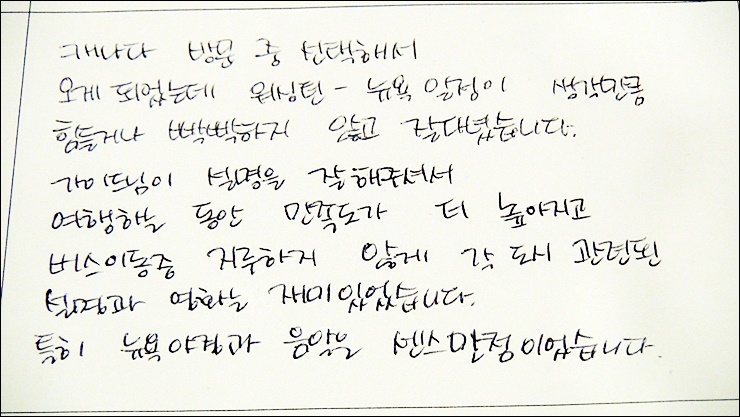 캐나다 방문 중 선택해서
오게 되었는데 워싱턴 - 뉴욕 일정이 생각만큼
힘들거나 빡빡하지 않고 잘다녔습니다.
가이드님이 설명을 잘해주셔서
여행하는 동안 만족도가 더 높아지고
버스이동중 지루하지 않게 각 도시 관련된
설명과 영화는 재미있었습니다.
특히 뉴욕야경과 음악은 센스만점이었습니다.